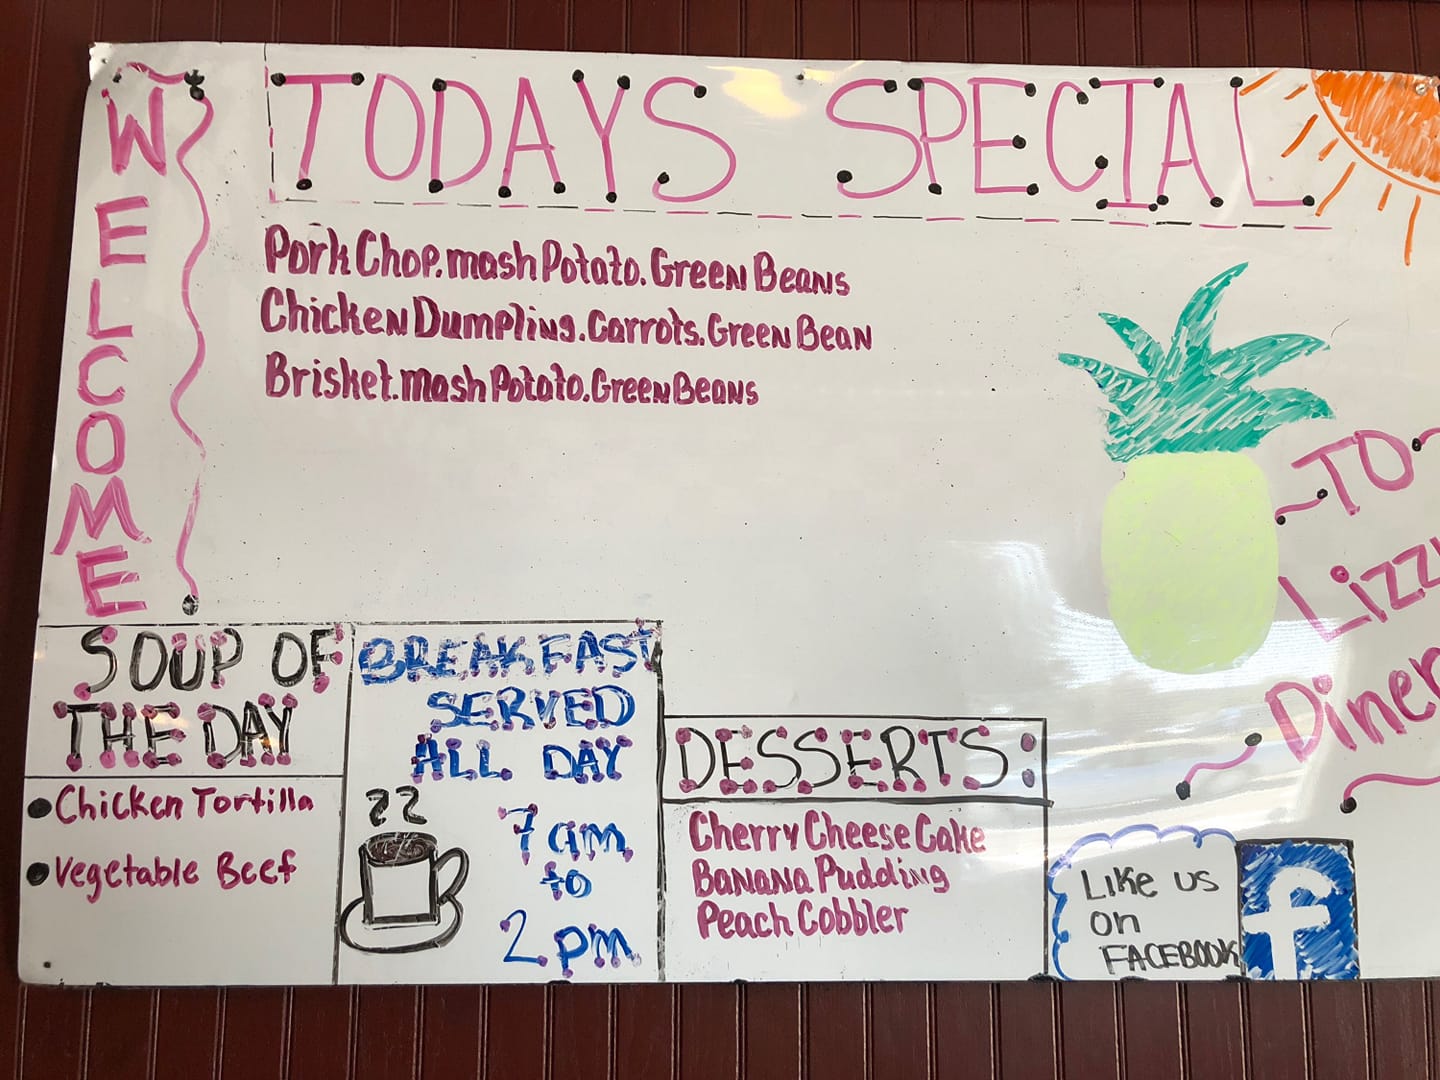 WELCOME
TODAYS SPECIAL
Pork Chop. mash Potato. Green Beans
Chicken Dumpling. Carrots. Green Bean
Brisket. mash Potato. Green Beans
TO
Lizzy
Diner
SOUP OF
THE DAY
Chicken Tortilla
Vegetable Beef
BREAKFAST
SERVED
ALL DAY
7 am
to
2 pm
DESSERTS:
Cherry Cheese Cake
Banana Pudding
Peach Cobbler
Like us
on
FACEBOOK
f